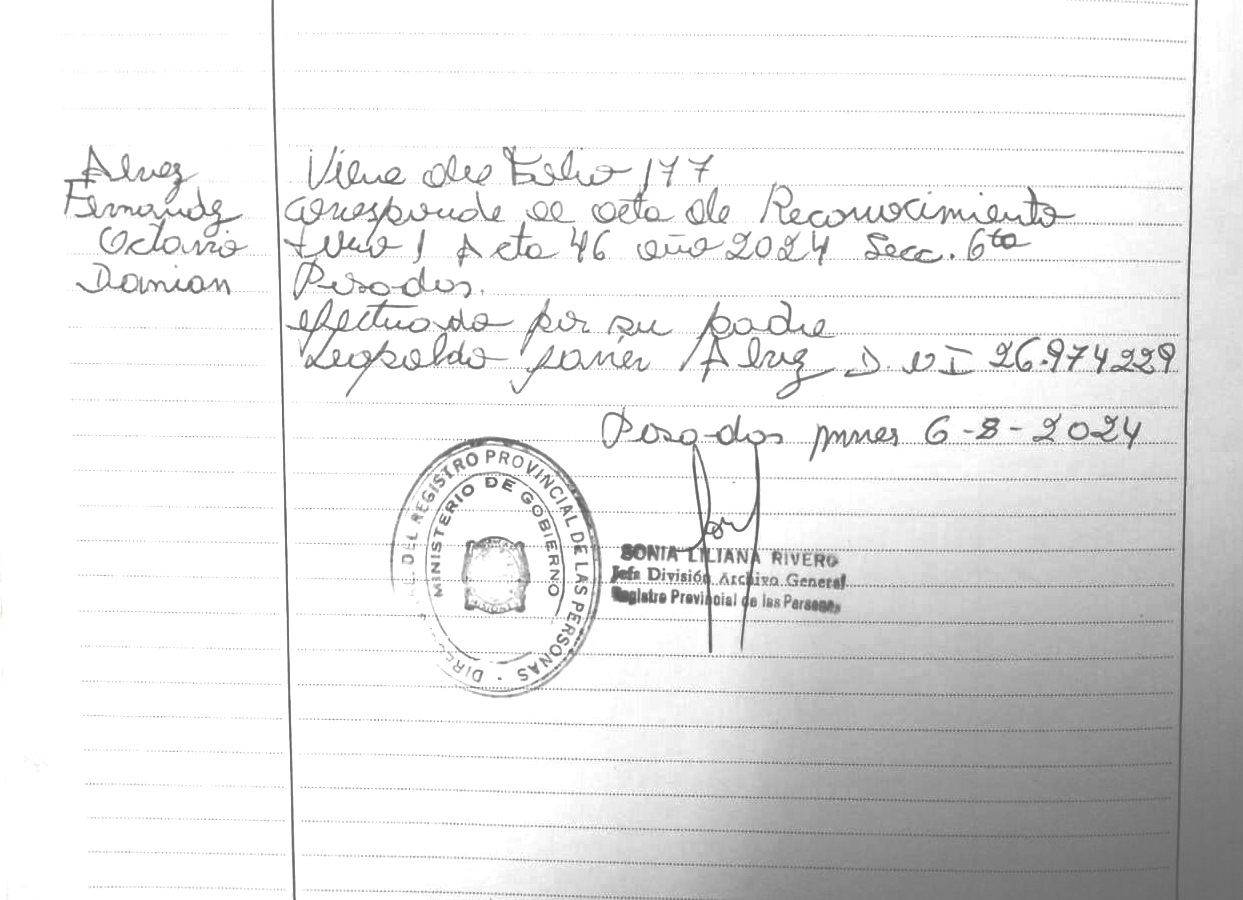 Alvez
Fernandz
Octavio
Damian
Viene del Folio 177
corresponde al acta de Reconocimiento
tomo 1 Acta 46 año 2024 Secc. 6ta
Posadas.
efectuado por su padre
Leopoldo Javier Alvez D.NI 26.974229
Posadas mnes 6-8-2024
DEL REGISTRO PROVINCIAL DE LAS PERSONAS
MINISTERIO DE GOBIERNO
SONIA LILIANA RIVERO
Jefa División Archivo General
Registro Provincial de las Personas